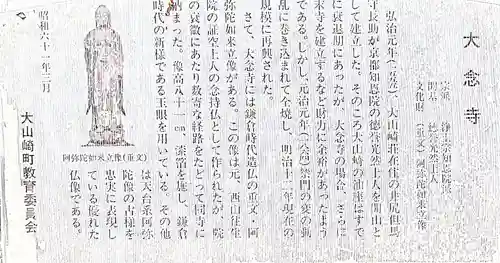 大念寺
宗派 浄土宗知恩院派
開基 徳誉光然上人
文化財 (重文)阿弥陀如来立像
弘治元年(一五五五)、大山崎荘在住の井尻但馬
守長助が京都知恩院の徳誉光然上人を開山と
して建立した。そのころ大山崎の油座はすで
に衰退期にあったが、大念寺の場合、さらに
末寺を建立するなど財力に余裕があったよう
である。しかし、元治元年(一八六四)禁門の変の動
乱に巻き込まれて全焼し、明治十二年現在の
規模に再興された。
さて、大念寺には鎌倉時代造仏の重文・阿
弥陀如来立像がある。この像は元、西山往生
院の証空上人の念持仏として作られたが、院
の衰微にあたり数寄な経路をたどって同寺に
納まった。像高八十一cm 漆箔を施し、鎌倉
時代の新様である玉眼を用いている。その他
は天台系阿弥
陀像の古様を
忠実に表現し
ている優れた
仏像である。
阿弥陀如来立像(重文)
昭和六十一年三月
大山崎町教育委員会